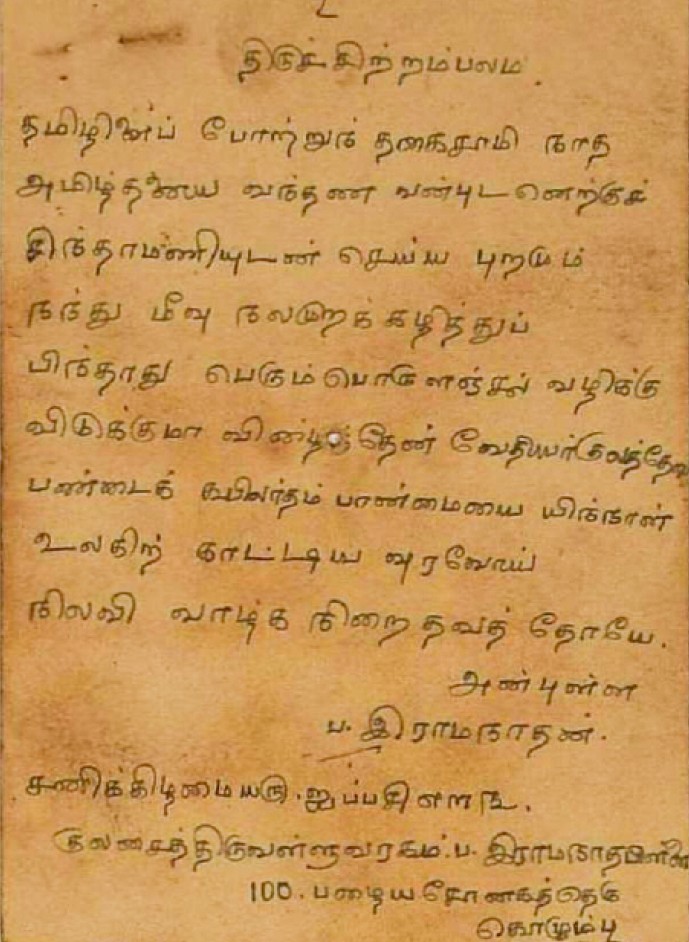 உ
திருச்சிற்றம்பலம்
தமிழினைப் போற்றுந் தகைசாமி நாத
அமிழ்தனைய வந்தண வன்புட னெற்குச்
சிந்தாமணியுடன் செய்ய புறமும்
நந்து மீவு நலமுறக் கழித்துப்
பிந்தாது பெரும்பொருளஞ்சல் வழிக்கு
விடுக்குமா வேதியர்குலத்தேவ
பண்டைக் கபிலர்தம் பான்மையை யிந்நாள்
உலகிற் காட்டிய வுரவோய்
நிலவி வாழ்க நிறைதவத் தோயே.
அன்புள்ள
ப. இராமநாதன்.
சனிக்கிழமையரு.
குலசைத்திருவள்ளுவரகம். ப. இராமநாதபிள்ளை
100. பழைய சோனகத்தெரு
கொழும்பு